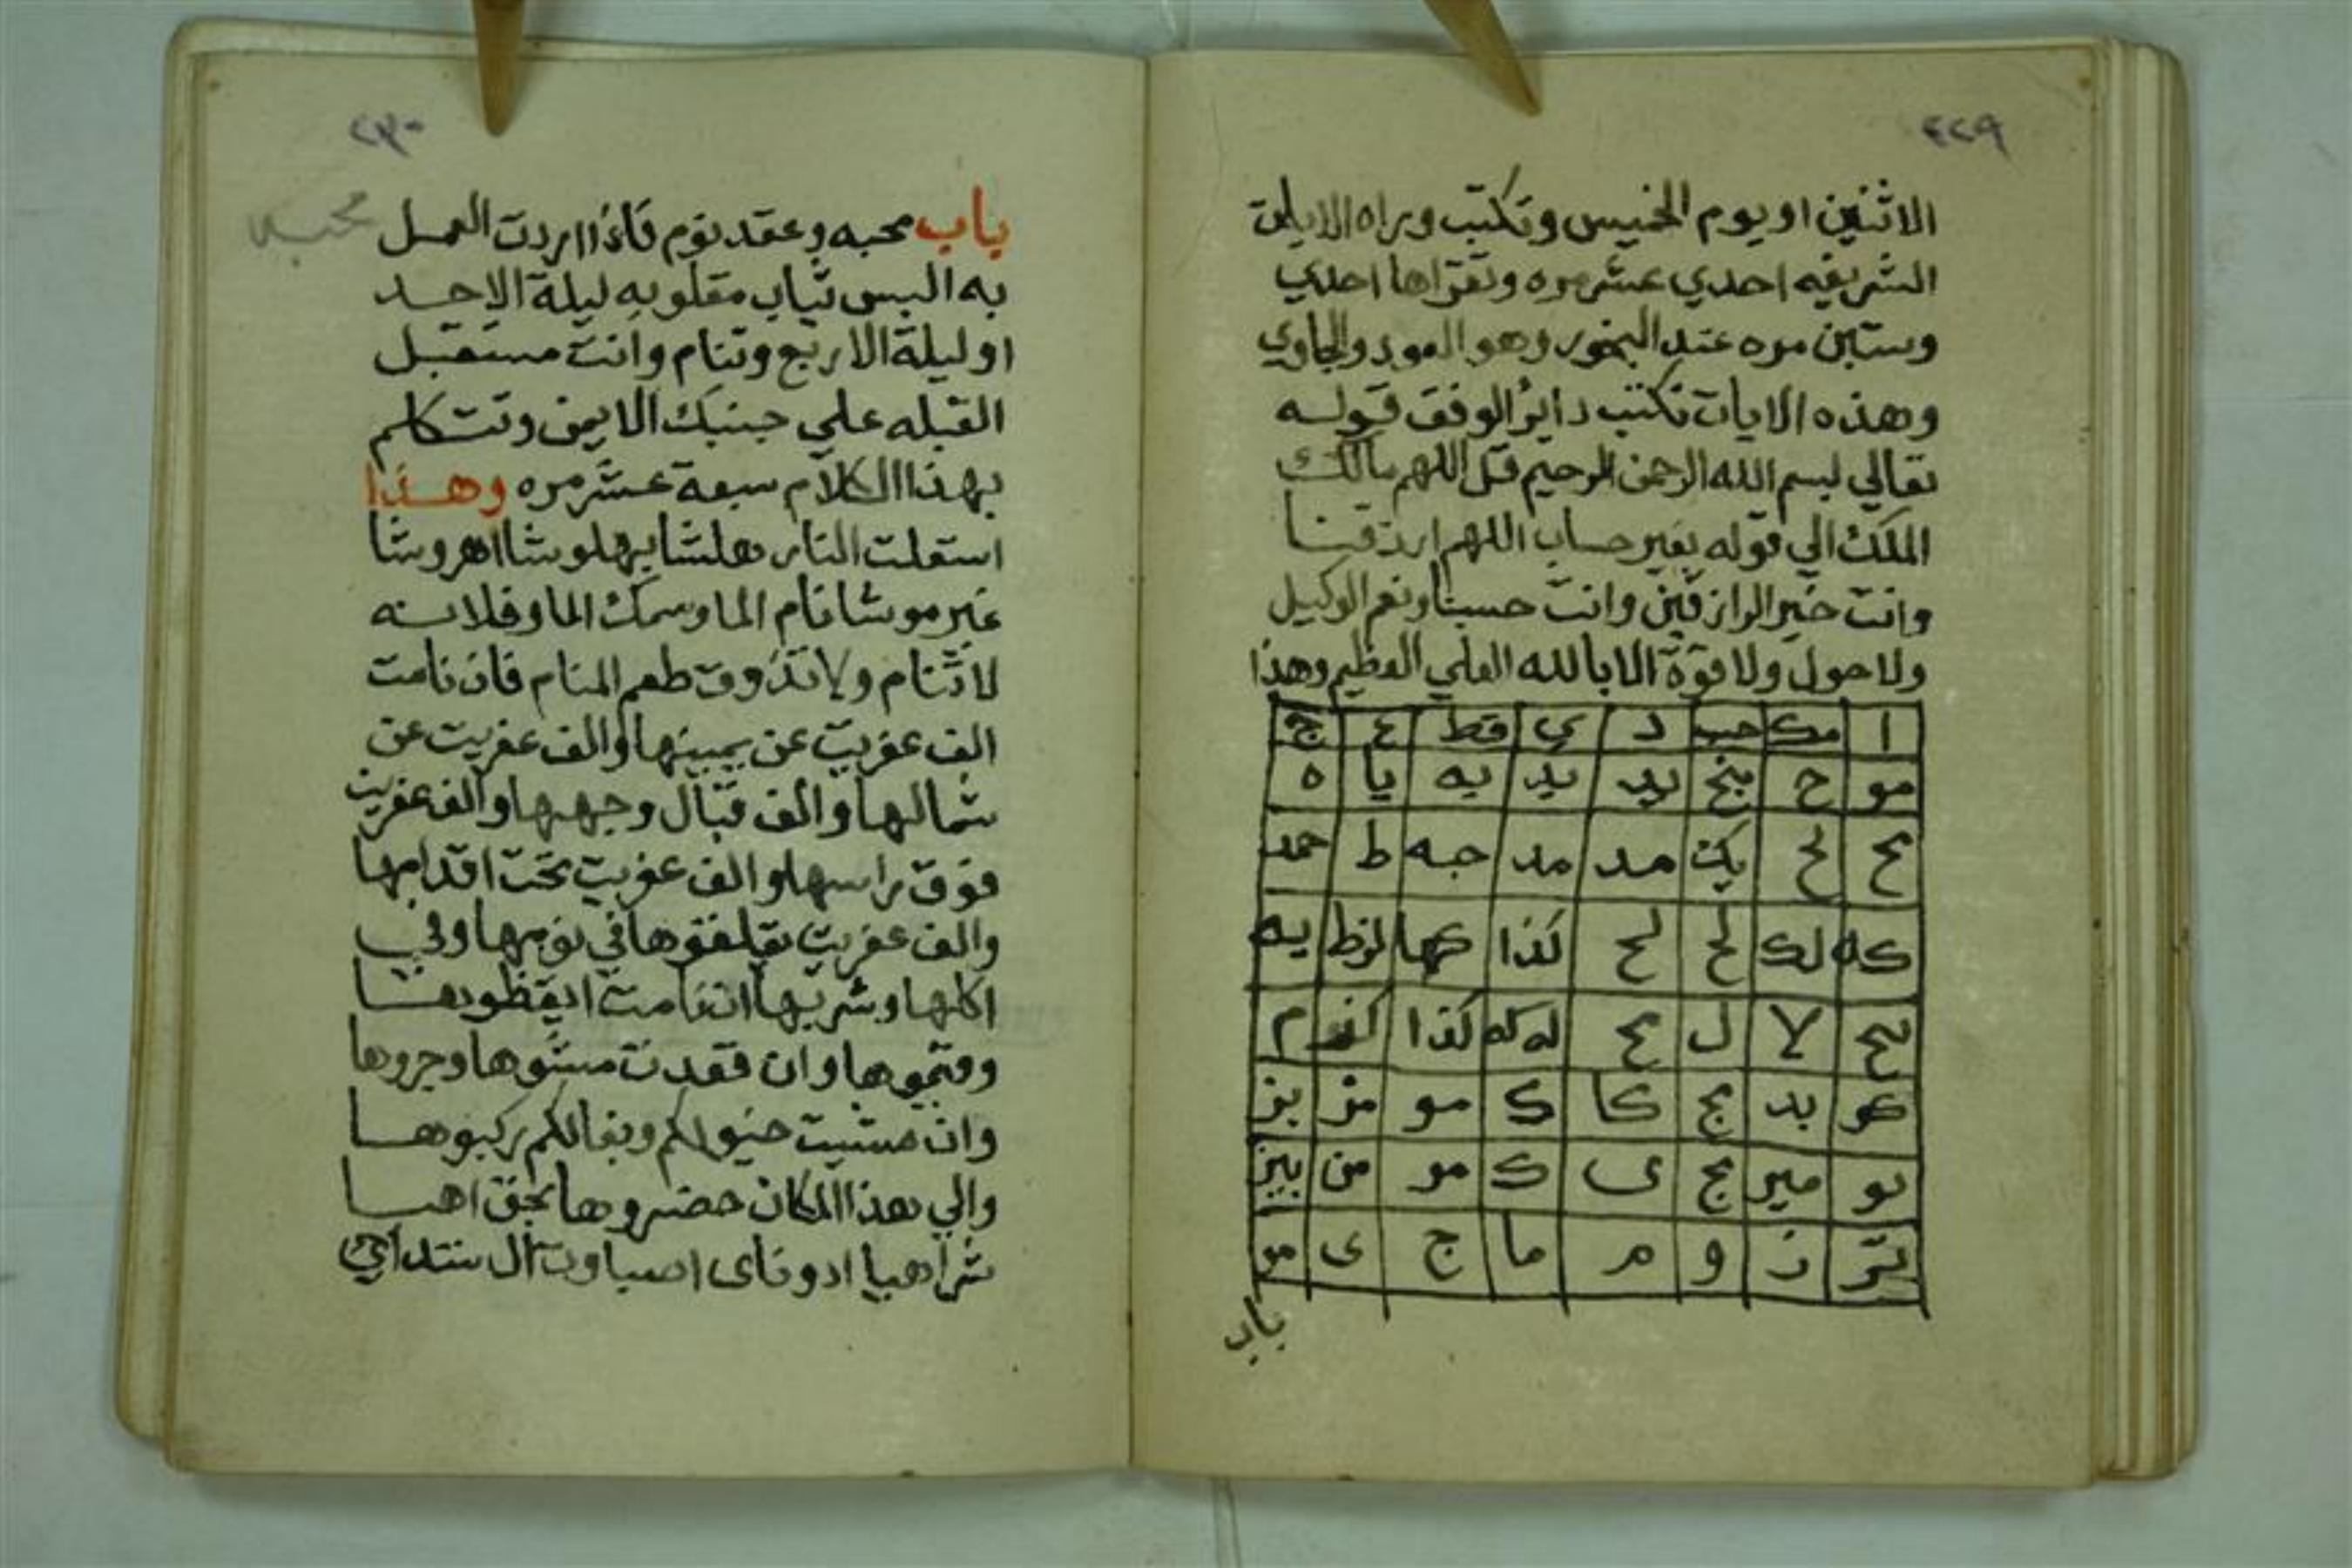 ٢٢٩
الاثنين او يوم الخميس وتكتب وراه الايات
الشريفه احدي عشر مره وتقراها احدي
وستين مره عند البخور وهو العود والجاوي
وهذه الايات تكتب داير الوفق قوله
تعالي بسم الله الرحمن الرحيم قل اللهم مالك
الملك الي قوله بغير حساب اللهم ارزقنا
وانت خير الرازقين وانت حسبنا ونعم الوكيل
ولا حول ولا قوة الا بالله العلي العظيم وهذا
ا مك حب د ي قط ع ج
مو ح بخ يد يد يه يا ه
مد مد جه ط حمد
كه لك لح لح كذا كها يه
لا ل كذا م
هو بد بج كا ك مو من بز
نو مير بج ى ك مو من بيز
تز ز و م ما ج ى مو
باب
٢٣٠
محبه
باب محبه وعقد نوم فاذا اردت العمل
به البس ثياب مقلوبه ليلة الاحد
او ليلة الاربع وتنام وانت مستقبل
القبله علي جنبك الايمن وتتكلم
بهذا الكلام سبعة عشر مره وهذا
استعلت النار هلشا يهلوشا اهروشا
غبر موشا نام الما وسمك الما وفلانه
لا تنام ولا تذوق طعم المنام فان نامت
الف عفريت عن يمينها والف عفريت عن
شمالها والف قبال وجهها والف عفريت
فوق راسها والف عفريت تحت اقدامها
والف عفريت يقلقوها في نومها وفي
اكلها وشربها ان نامت ايقظوها
وقيموها وان قعدت مشوها وجروها
وان مشيت خيولكم وبغالكم ركبوها
والي هذا المكان حضروها بحق اهيا
شراهيا ادوناى اصباوت ال شداي